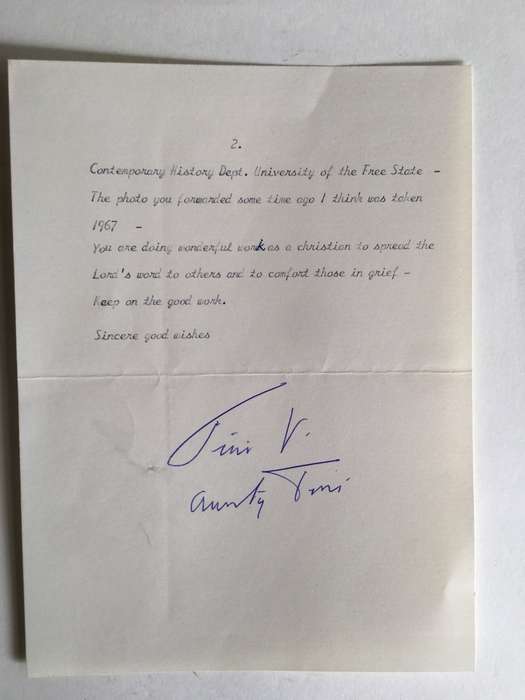 2.
Contemporary History Dept. University of the Free State -
The photo you forwarded some time ago I think was taken
1967 -
You are doing wonderful work as a christian to spread the
Lord's word to others and to comfort those in grief -
Keep on the good work.
Sincere good wishes
Tini V.
Aunty Tini